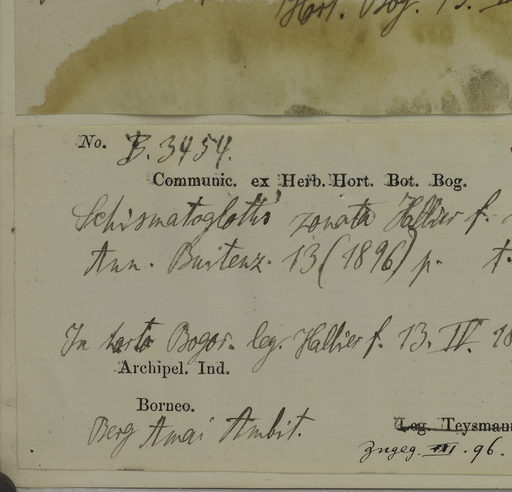 Hort. Bog. 13.
No. B. 3454.
Communic. ex Herb. Hort. Bot. Bog.
Schismatoglottis zonata Hallier f.
Ann. Buitenz. 13 (1896) p. t.
In horto Bogor. leg. Hallier f. 13. IV. 18
Archipel. Ind.
Borneo.
Berg Amai Ambit.
Leg. Teysmann
zugeg. III. 96.